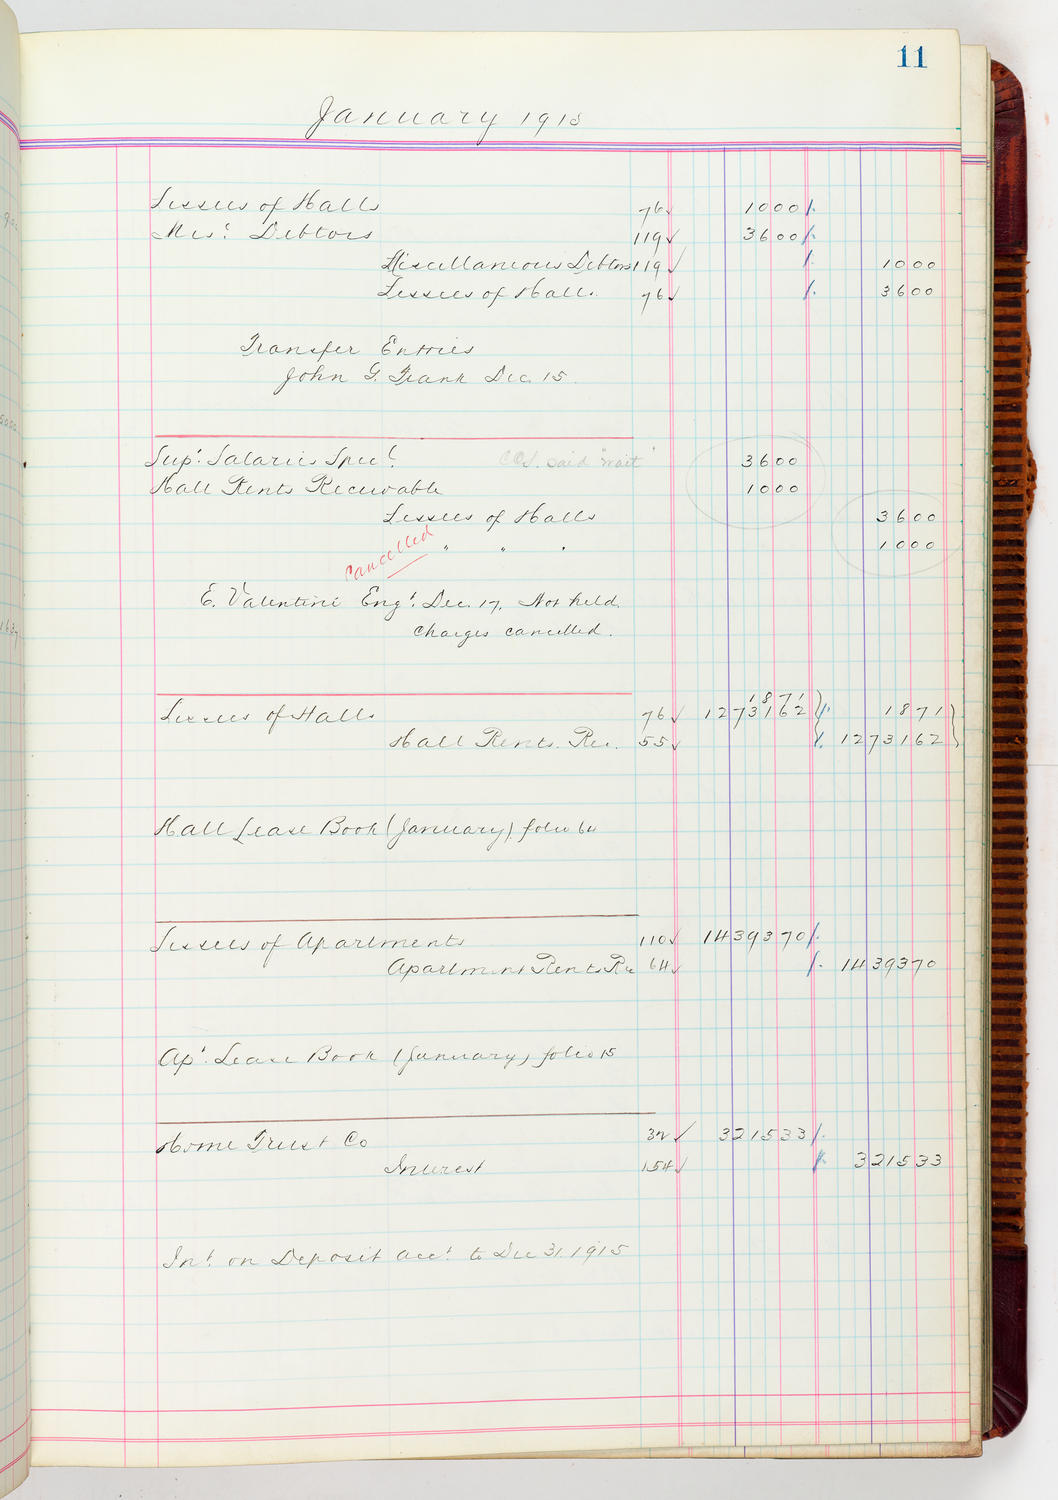 11
January 1915
Lessees of Halls 76 ✓ 1000
Mis. Debtors 119 ✓ 3600
Miscellaneous Debtors 119 ✓ 1000
Lessees of Halls. 76 ✓ 3600
Transfer Entries
John G. Frank Dec. 15.
Sup't. Salaries Specl. said "wait" 3600
Hall Rents Receivable 1000
Lessees of Halls 3600
Cancelled " " " 1000
E. Valentini Eng't. Dec. 17. Not held.
Charges cancelled.
1871
Lessees of Halls 76 ✓ 1273162 1871
Hall Rents. Rec. 55 ✓ 1273162
Hall Lease Book (January) folio 64
Lessees of Apartments 110 ✓ 1439370
Apartment Rents Re 64 ✓ 1439370
Ap't. Lease Book (January) folio 15
Home Trust Co 32 ✓ 321533
Interest 154 ✓ 321533
Int. on Deposit acct. to Dec 31. 1915